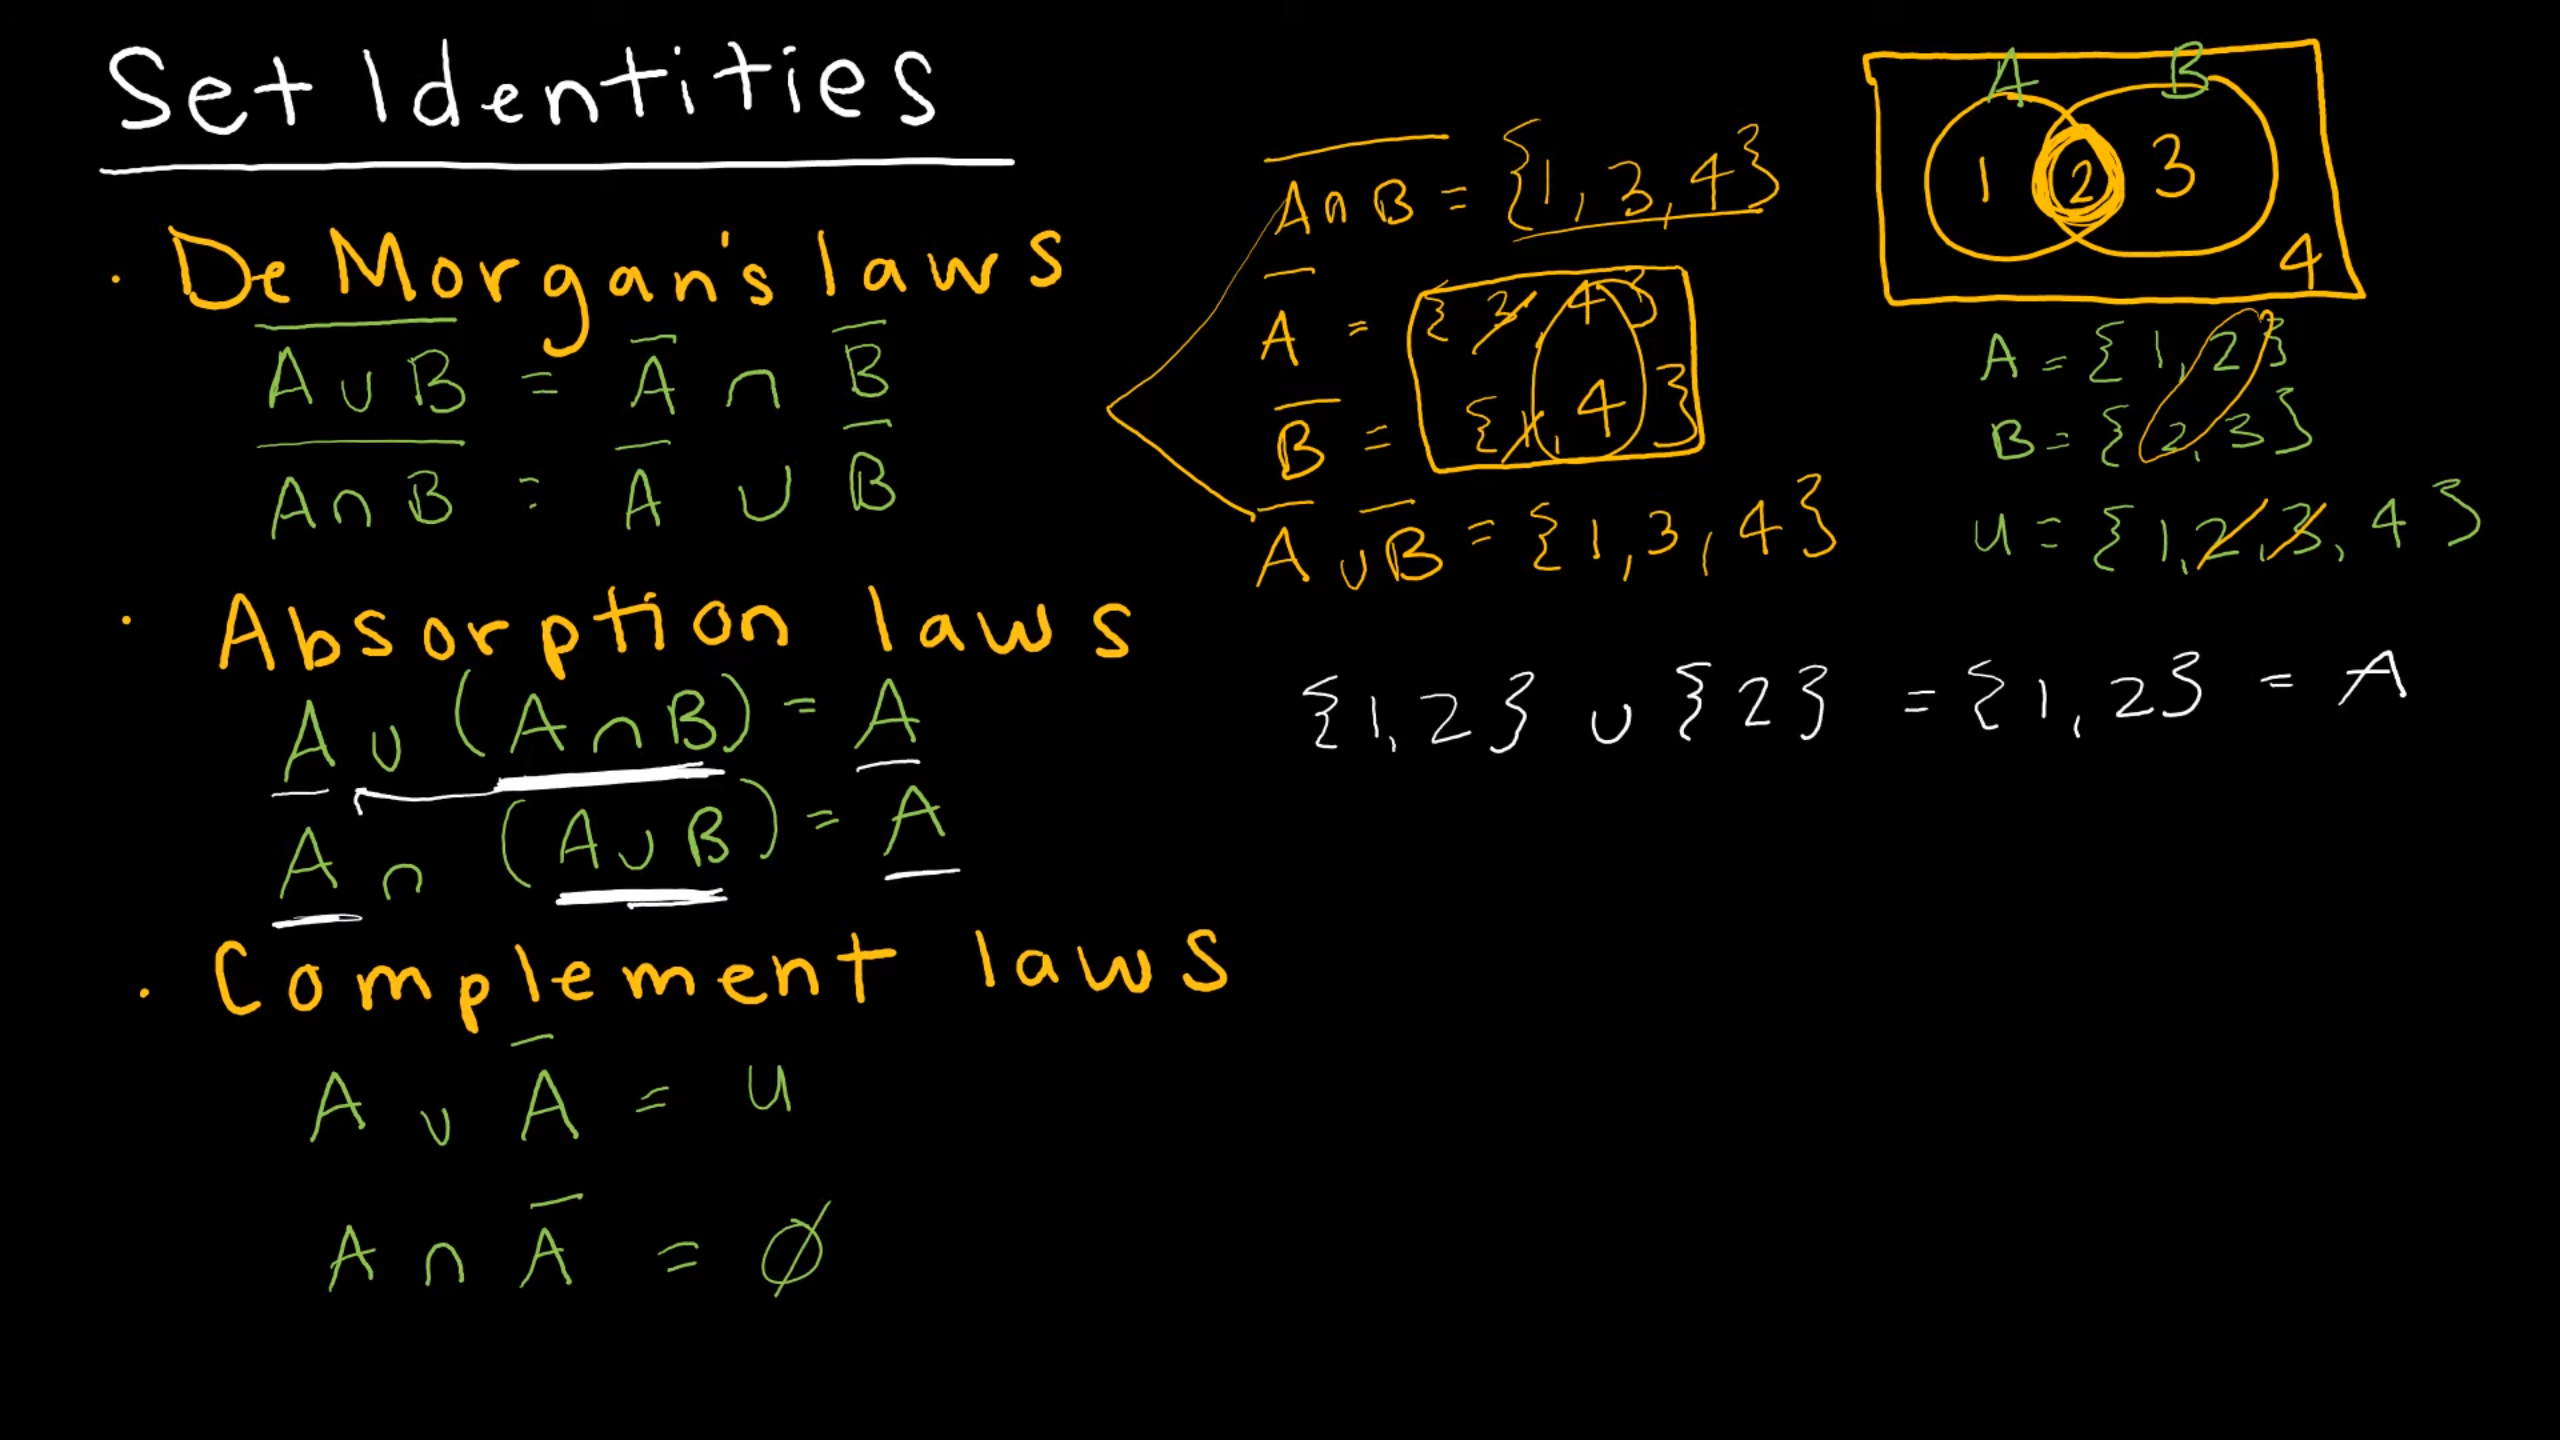 Set Identities
· De Morgan's laws
A̅ ̅∪̅ ̅B̅ = A̅ ∩ B̅
A̅ ̅∩̅ ̅B̅ = A̅ ∪ B̅
· Absorption laws
A ∪ (A ∩ B) = A
A ∩ (A ∪ B) = A
· Complement laws
A ∪ A̅ = U
A ∩ A̅ = ∅
A̅ ̅∩̅ ̅B̅ = {1, 3, 4}
A̅ = {3, 4}
B̅ = {1, 4}
A̅ ∪ B̅ = {1, 3, 4}
A B
1 2 3
4
A = {1, 2}
B = {2, 3}
U = {1, 2, 3, 4}
{1, 2} ∪ {2} = {1, 2} = A